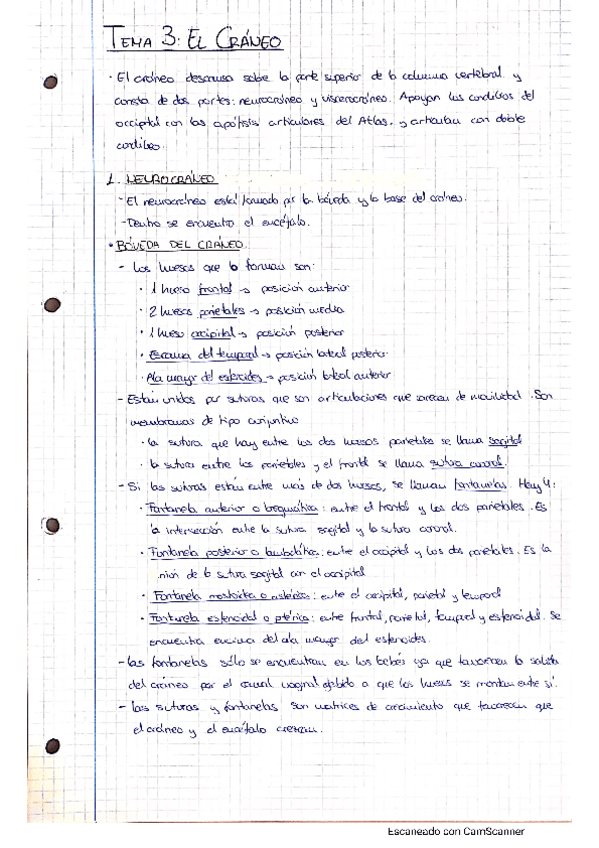 TEMA 3: EL CRÁNEO
· El cráneo descansa sobre la parte superior de la columna vertebral y
consta de dos partes: neurocráneo y viscerocráneo. Apoyan los cóndilos del
occipital con las apófisis articulares del Atlas, y articulan con doble
cóndilo.
1. NEUROCRÁNEO
- El neurocráneo está formado por la bóveda y la base del cráneo.
- Dentro se encuentra el encéfalo.
· BÓVEDA DEL CRÁNEO
- Los huesos que la forman son:
· 1 hueso frontal → posición anterior
· 2 huesos parietales → posición media
· 1 hueso occipital → posición posterior
· Escama del temporal → posición lateral posterior
· Ala mayor del esfenoides → posición lateral anterior
- Están unidos por suturas que son articulaciones que carecen de movilidad. Son
membranas de tipo conjuntivo
· La sutura que hay entre los dos huesos parietales se llama sagital
· La sutura entre los parietales y el frontal se llama sutura coronal.
- Si las suturas están entre más de dos huesos, se llaman fontanelas. Hay 4:
· Fontanela anterior o bregmática: entre el frontal y los dos parietales. Es
la intersección entre la sutura sagital y la sutura coronal.
· Fontanela posterior o lambdática: entre el occipital y los dos parietales. Es la
unión de la sutura sagital con el occipital
· Fontanela mastoidea o astérica: entre el occipital, parietal y temporal
· Fontanela esfenoidal o ptérica: entre frontal, parietal, temporal y esfenoidal. Se
encuentra encima del ala mayor del esfenoides.
- Las fontanelas sólo se encuentran en los bebés ya que favorecen la salida
del cráneo por el canal vaginal debido a que los huesos se montan entre sí.
- Las suturas y fontanelas son matrices de crecimiento que favorecen que
el cráneo y el encéfalo crezcan.
Escaneado con CamScanner